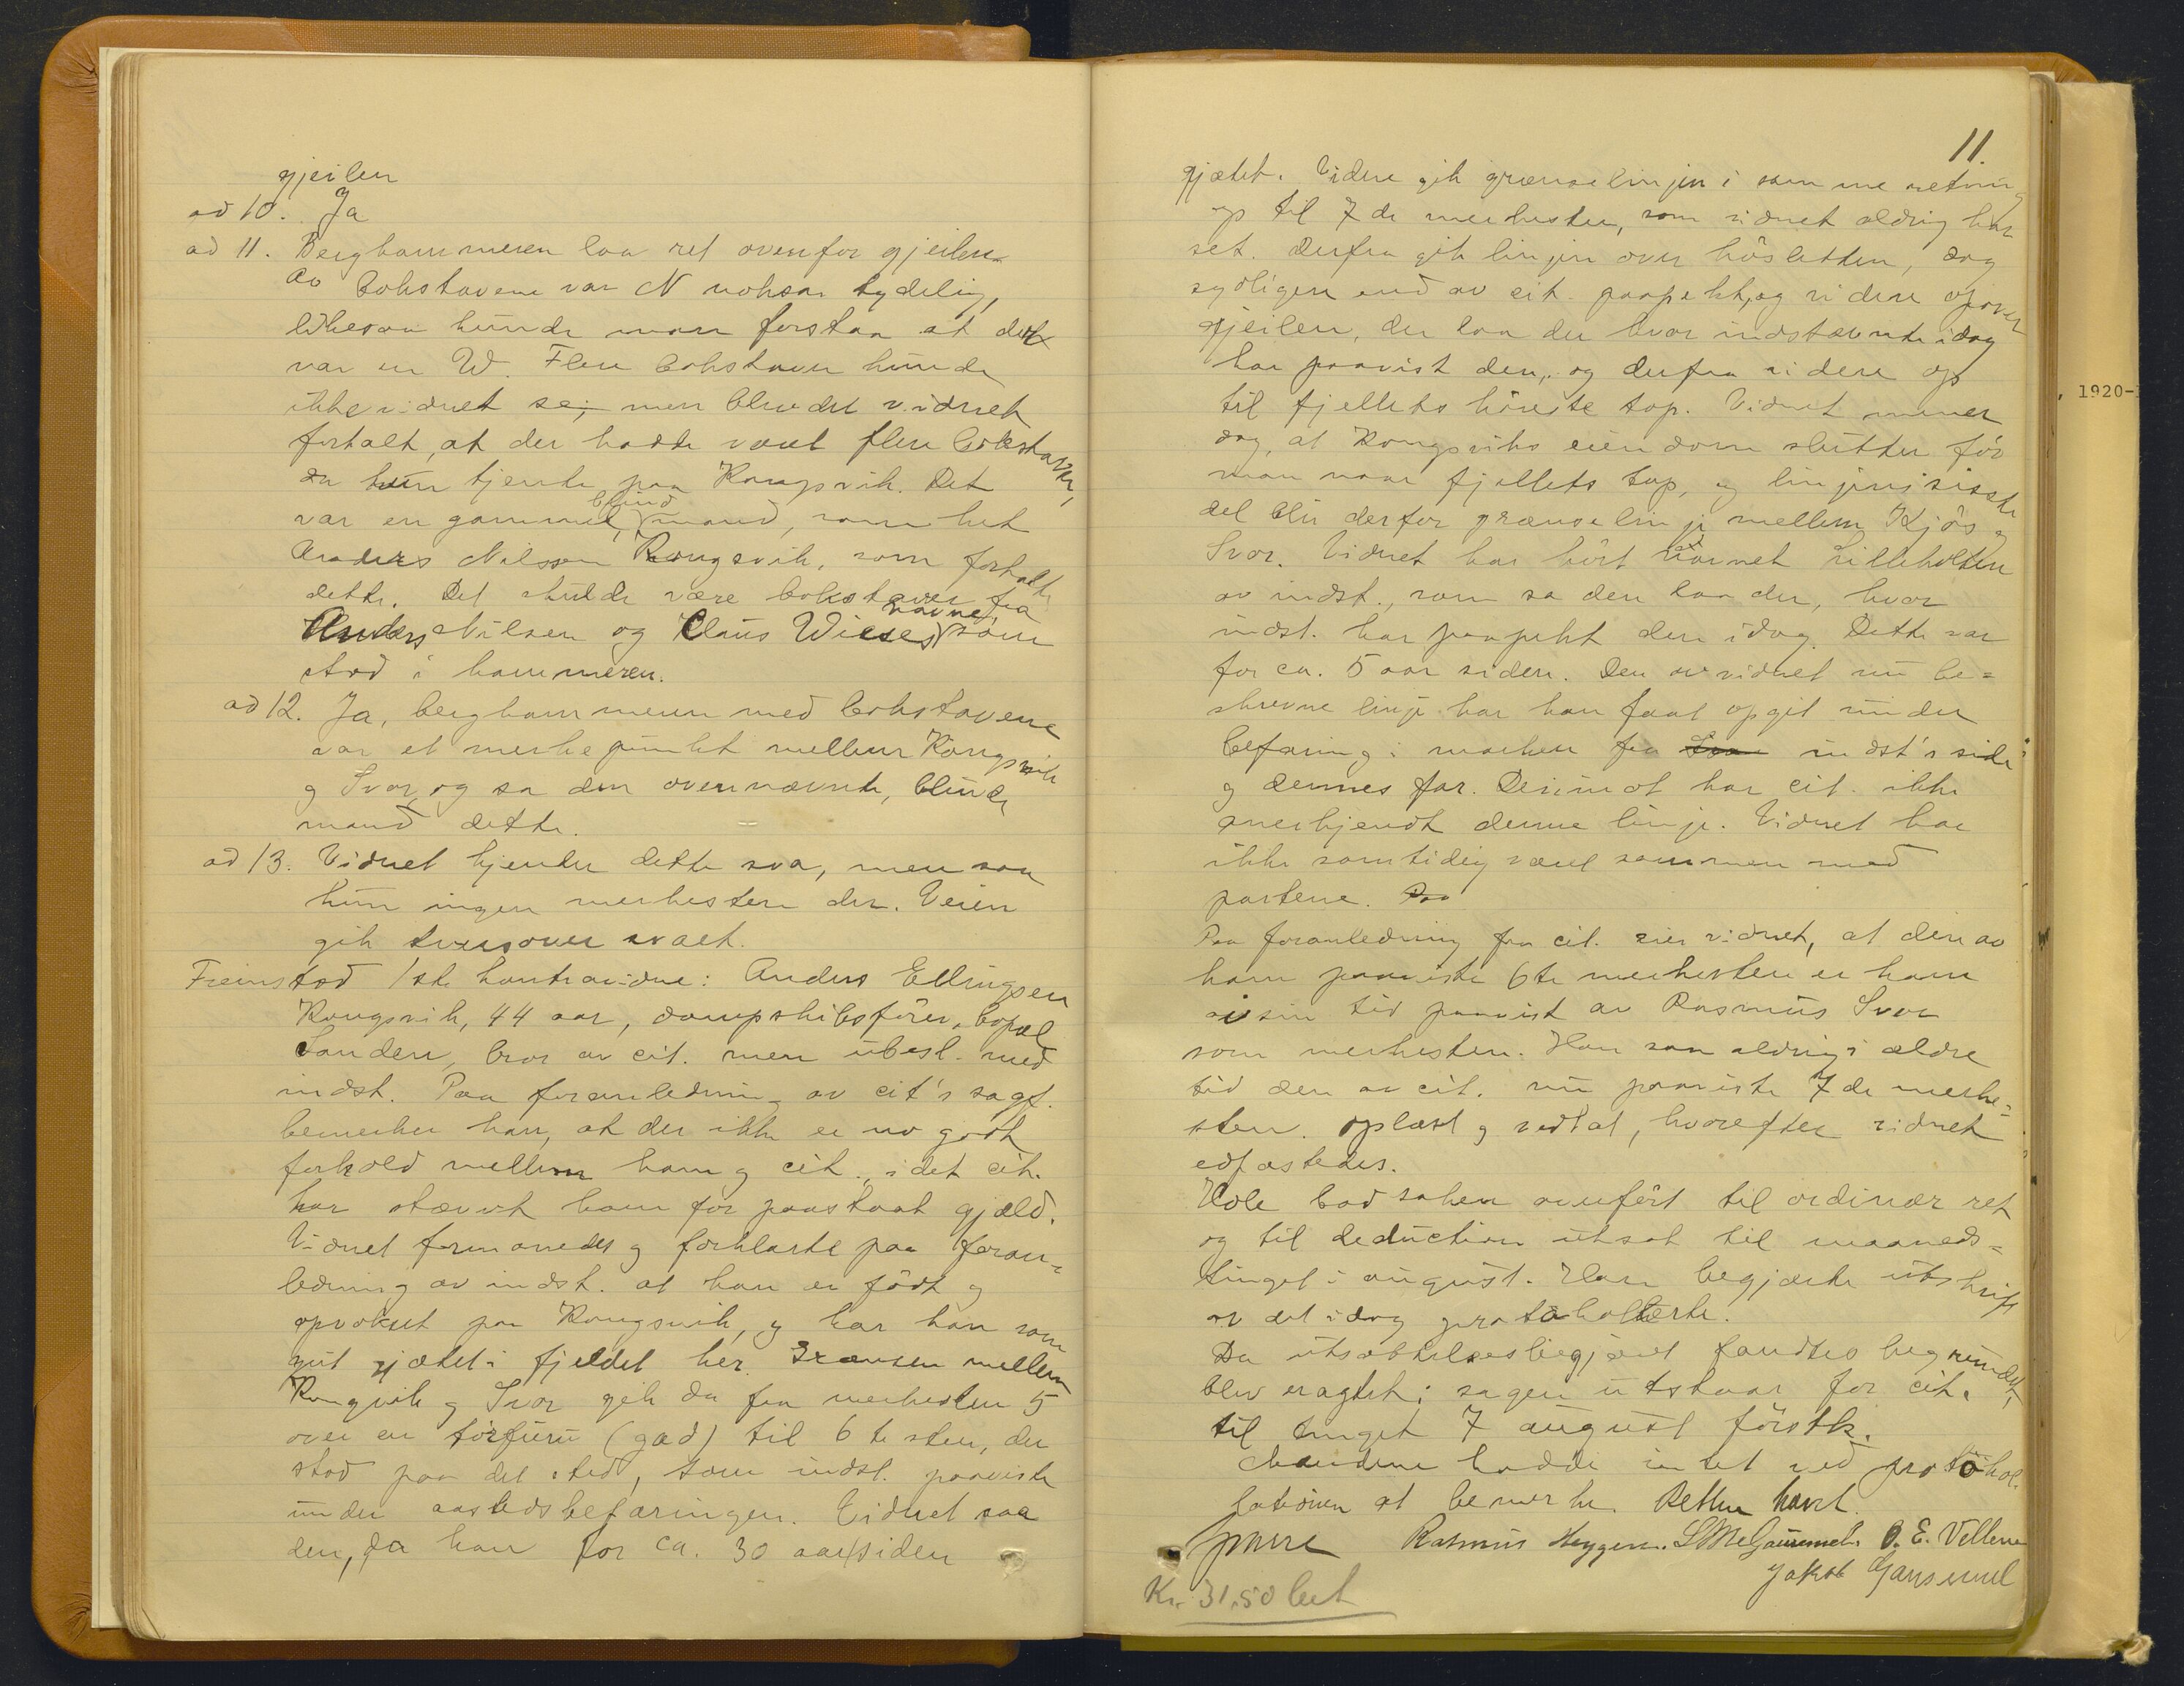 gjeilen
ad 10. Ja
ad 11. Berghammeren laa ret ovenfor gjeilen.
Av bokstavene var N noksaa tydelig,
likesaa kunde man forstaa at det
var en W. Flere bokstaver kunde
ikke vidnet se, men blev det vidnet
fortalt, at der hadde været flere bokstaver,
da hun tjente paa Kongsvik. Det
var en gammel, blind mand, som het
Anders Nilssen Kongsvik, som fortalte
dette. Det skulde være bokstaver fra
Anders Nilsen og Claus Wieses navne som
stod i hammeren.
ad 12. Ja, berghammeren med bokstavene
var et merkepunkt mellem Kongsvik
og Svor, og sa den ovennævnte, blinde
mand dette.
ad 13. Vidnet kjender dette sva, men saa
hun ingen merkesten der. Veien
gik tversover svaet.
Fremstod 1ste kontravidne: Anders Ellingsen
Kongsvik, 44 aar, dampskibsfører, bopæl
Sanden, bror av cit. men ubesl. med
indst. Paa foranledning av cit's sagf.
bemerker han, at der ikke er no godt
forhold mellem ham og cit., idet cit.
har stævnt ham for paastaat gjæld.
Vidnet formanedes og forklarte paa foran-
ledning av indst. at han er født og
opvokset paa Kongsvik, og har han som
gut gjætet i fjeldet her. Grænsen mellem
Kongvik og Svor gik da fra merkesten 5
over en törfuru (gad) til 6te sten, der
stod paa det sted, som indst. paaviste
under aastedsbefaringen. Vidnet saa
den, da han for ca. 30 aar siden
11.
gjætet. Videre gik grænselinjen i samme retning
op til 7de merkesten, som vidnet aldrig har
set. Derfra gik linjen over hösletten, dog
sydligere end av cit. paapekt, og videre opover
gjeilen, der laa der hvor indstævnte idag
har paavist den, og derfra videre op
til fjellets höieste top. Vidnet mener
dog, at Kongsviks eiendom slutter för
man naar fjellets top, og linjens sisste
del blir derfor grænselinje mellem Kjös og
Svor. Vidnet har hört navnet Lilleholten
av indst., som sa den laa der, hvor
indst. har paapekt den idag. Dette var
for ca. 5 aar siden. Den av vidnet nu be-
skrevne linje har han faat opgit under
befaring i marken fra indst's side
og dennes far. Derimot har cit. ikke
anerkjendt denne linje. Vidnet har
ikke samtidig været sammen med
partene.
Paa foranledning fra cit. sier vidnet, at den av
ham paaviste 6te merkesten er ham
i sin tid paavist av Rasmus Svor
som merkesten. Han saa aldrig i ældre
tid den av cit. nu paaviste 7de merke-
sten. Oplæst og vedtat, hvorefter vidnet
edfæstedes.
Hole bad saken overfört til ordinær ret
og til deduction utsat til maaneds-
tinget i august. Han begjærte utskrift
av det idag protokollerte.
Da utsættelsesbegjæret fandtes begrundet,
blev eragtet: sagen utstaar for cit.
til tinget 7 august förstk.
Mændene hadde intet ved protokol-
lationen at bemerke. Retten hævet.
Rasmus Heggem. O. E. Vellene
Jakob Gausemel
Kr. 31,50 bet
1920-